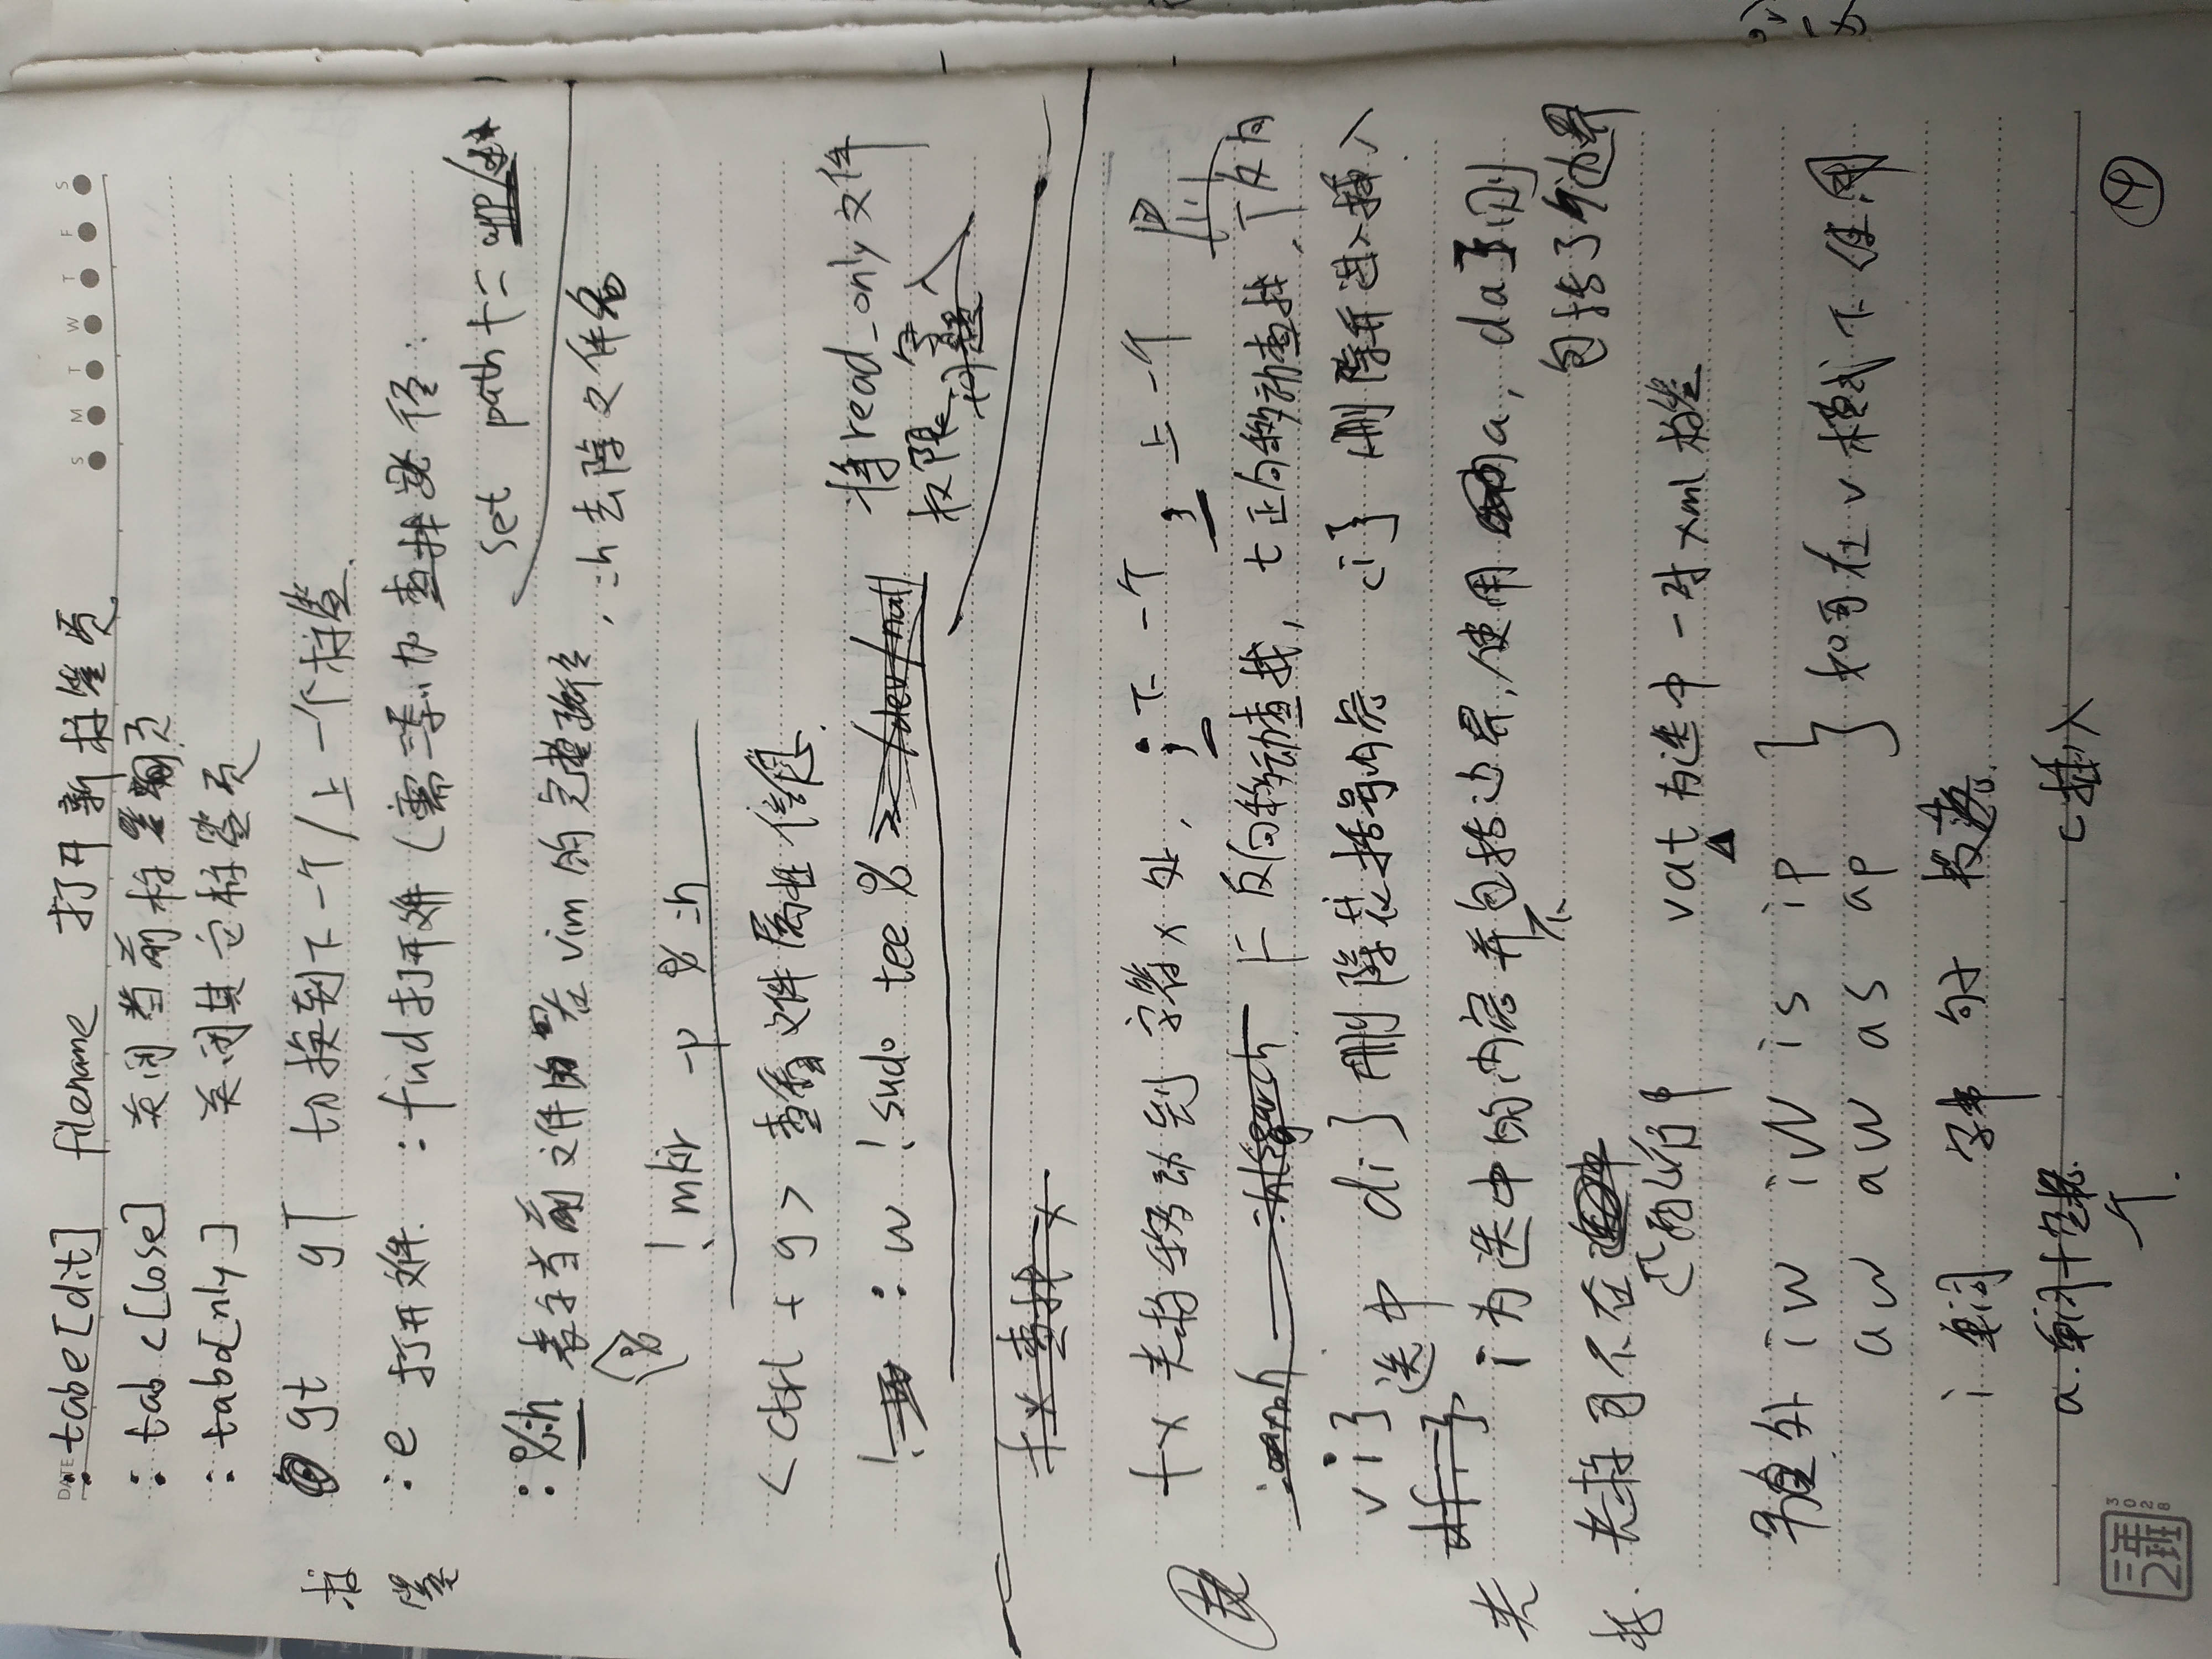 DATE
S M T W T F S
:tabe[dit] filename 打开新标签页
:tabc[lose] 关闭当前标签页
:tabo[nly] 关闭其它标签页
gt gT 切换到下一个/上一个标签
标签
:e 打开文件. :find 打开文件 (需手动查找路径:
set path+=app/**
:%:h 表示当前文件 在vim的完整路径, :h去除文件名
%
!mkdir -p %:h
<ctrl + g> 查看文件属性信息.
:w !sudo tee % >/dev/null 将read_only文件
权限 写入
f x 查找 x
f x 光标移动到字符x处, ; 下一个 , 上一个
F 反向移动查找, t 正向移动查找, T 反向
vi} 选中 di} 删除花括号内容 ci} 删除并进入插入
i为选中的内容并不包括边界, 使用a, da}则
包括了边界
光标
光标可不在匹配符中
vat 为选中一对xml标签
另外 iw iW is ip
aw aW as ap
如可在v模式下使用
i 单词 字串 句子 段落.
a. 单词+空格
个.
c插入
三年二班
3028